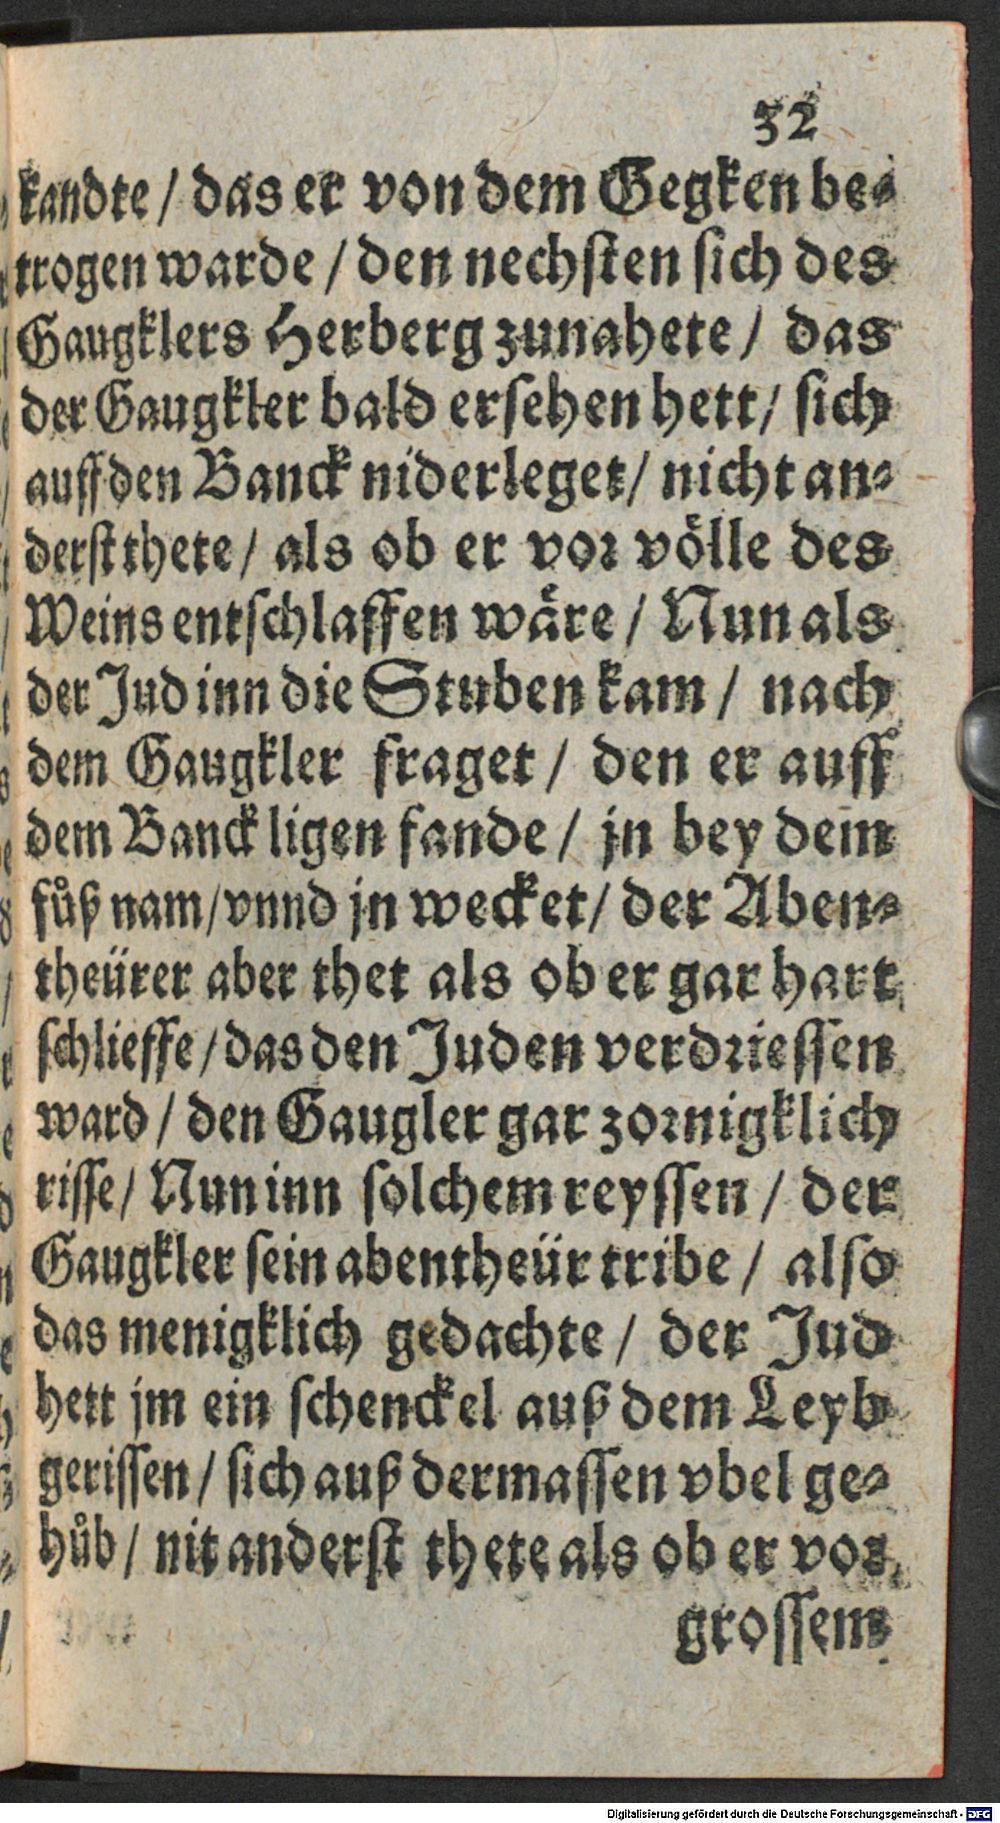 32
kandte / das er von dem Gegken be-
trogen warde / den nechsten sich des
Gaugklers Herberg zunahete / das
der Gaugkler bald ersehen hett / sich
auff den Banck niderleget / nicht an-
derst thete / als ob er vor völle des
Weins entschlaffen wäre / Nun als
der Jud inn die Stuben kam / nach
dem Gaugkler fraget / den er auff
dem Banck ligen fande / jn bey dem
fůß nam / vnnd jn wecket / der Aben-
theürer aber thet als ob er gar hart
schlieffe / das den Juden verdriessen
ward / den Gaugler gar zornigklich
risse / Nun inn solchem reyssen / der
Gaugkler sein abentheür tribe / also
das menigklich gedachte / der Jud
hett jm ein schenckel auß dem Leyb
gerissen / sich auß dermassen vbel ge-
hůb / nit anderst thete als ob er vor
grossem
Digitalisierung gefördert durch die Deutsche Forschungsgemeinschaft - DFG